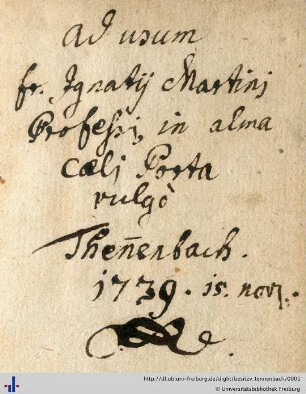 ad usum
fr. Ignatij Martini
Professi, in alma
Cæli Porta
vulgò
Then̄enbach.
1739. 15. nov.
http://dl.ub.uni-freiburg.de/diglit/besitzv_tennenbach/0001
© Universitätsbibliothek Freiburg